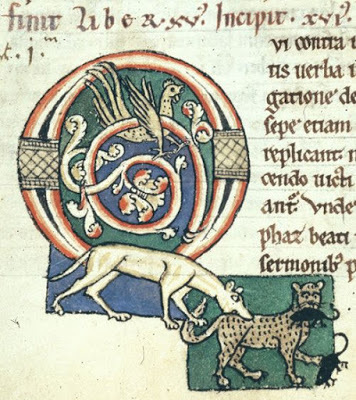 finit Liber · xv · Incipit · xvi ·
k · i
Q
vi contra
tis uerba
gatione de
sepe etiam
replicant
cendo uicti
ant Vnde
phaz beati
sermonibꝰ p